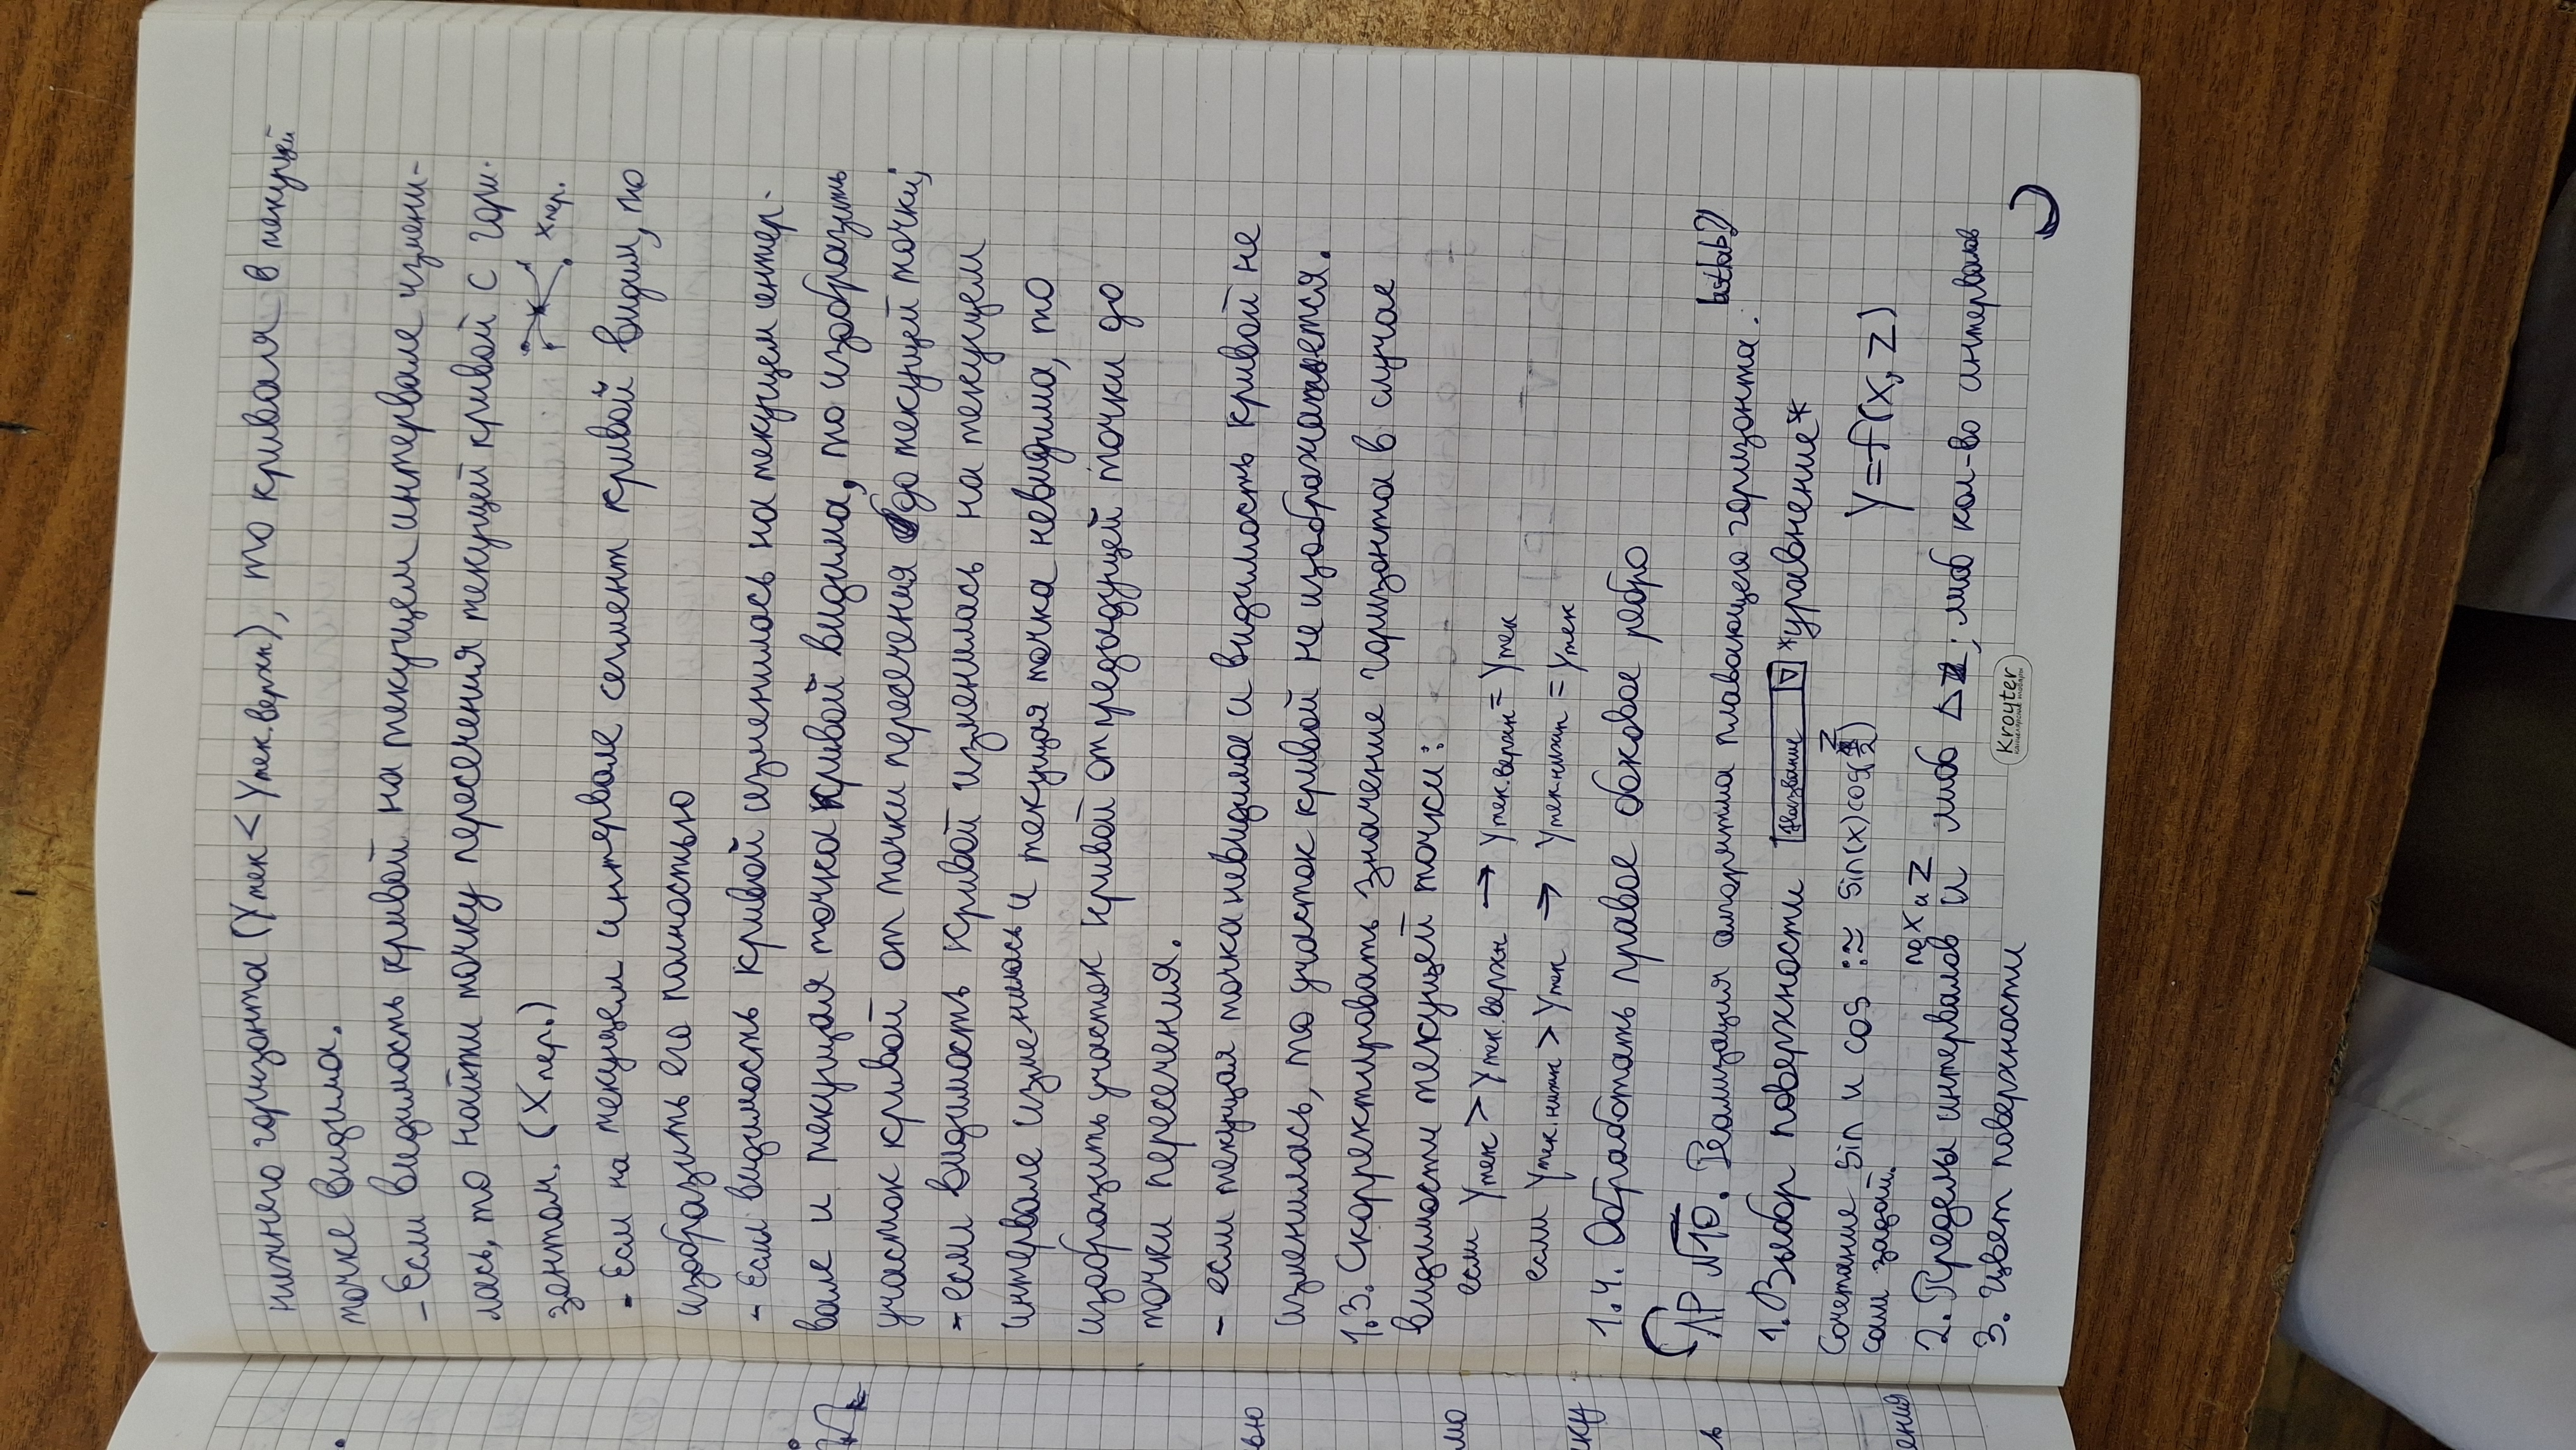 нижнего горизонта (Yтек < Yтек.верхн), то кривая в текущей
точке видима.
- Если видимость кривой на текущем интервале измени-
лась, то найти точку пересечения текущей кривой с гори-
зонтом. (Xпер.)
Xпер.
- Если на текущем интервале сегмент кривой видим, то
изобразить его полностью
- Если видимость кривой изменилась на текущем интер-
вале и текущая точка кривой видима, то изобразить
участок кривой от точки пересечения до текущей точки;
- если видимость кривой изменилась на текущем
интервале изменилась и текущая точка невидима, то
изобразить участок кривой от предыдущей точки до
точки пересечения.
- если текущая точка невидима и видимость кривой не
изменилась, то участок кривой не изображается.
1.3. Скорректировать значение горизонта в случае
видимости текущей точки:
если Yтек > Yтек.верхн → Yтек.верхн = Yтек
если Yтек.нижн > Yтек → Yтек.нижн = Yтек
1.4. Обработать правое боковое ребро
ЛР №10. Реализация алгоритма плавающего горизонта.
1. Выбор поверхности Название ▽ *уравнение*
Сочетание sin и cos :≈ sin(x)cos(z/2)
сам задай.
y=f(x, z)
по x и z
2. Пределы интервалов и либо Δz; либо кол-во интервалов
3. Цвет поверхности
Kroyter
канцелярские товары
вью
мо
ку
ь
ения